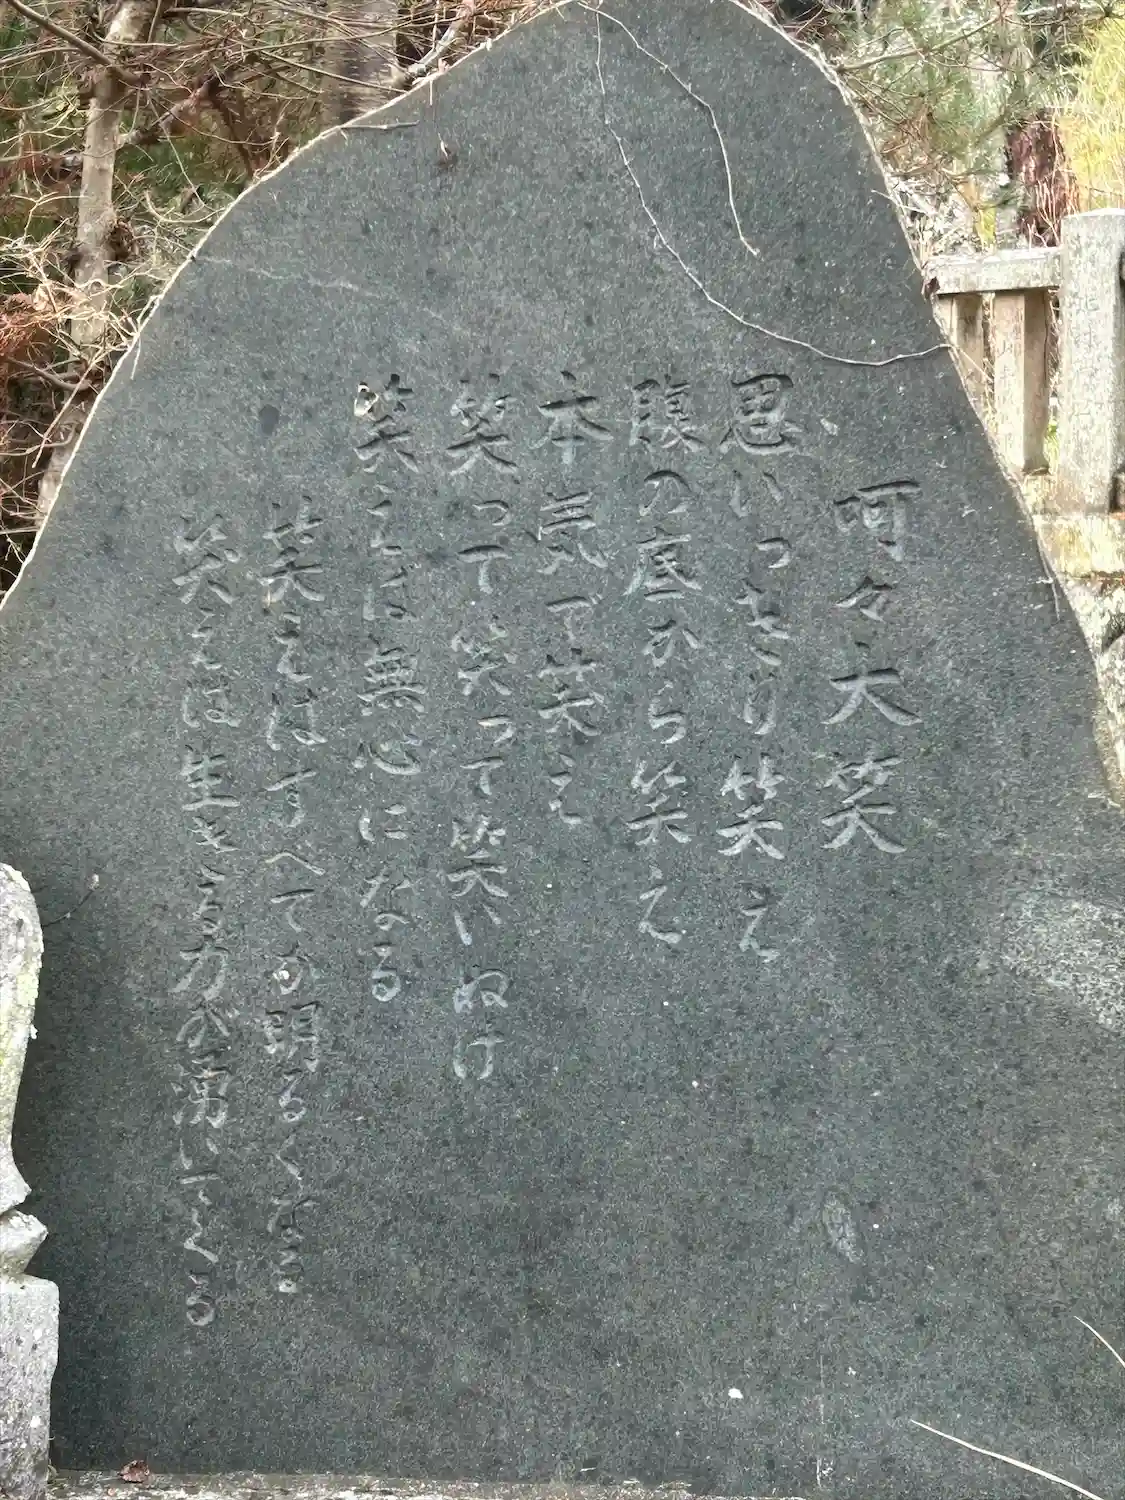 呵々大笑
思いっきり笑え
腹の底から笑え
本気で笑え
笑って笑って笑いぬけ
笑えば無心になる
笑えばすべてが明るくなる
笑えば生きる力が湧いてくる